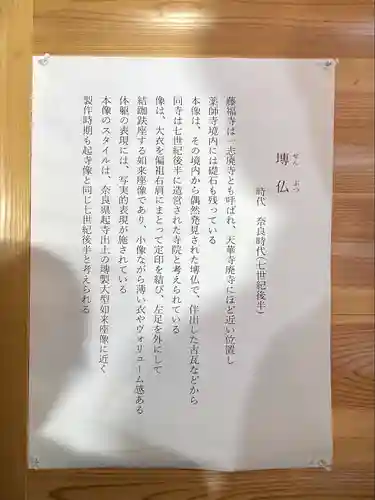 塼仏
せん ぶつ
時代 奈良時代(七世紀後半)
藤福寺は一志廃寺とも呼ばれ、天華寺廃寺にほど近い位置し
薬師寺境内には礎石も残っている
本像は、その境内から偶然発見された塼仏で、伴出した古瓦などから
同寺は七世紀後半に造営された寺院と考えられている
像は、大衣を偏袒右肩にまとって定印を結び、左足を外にして
結跏趺座する如来座像であり、小像ながら薄い衣やヴォリューム感ある
体躯の表現には、写実的表現が施されている
本像のスタイルは、奈良県起寺出土の塼製大型如来座像に近く
製作時期も起寺像と同じ七世紀後半と考えられる